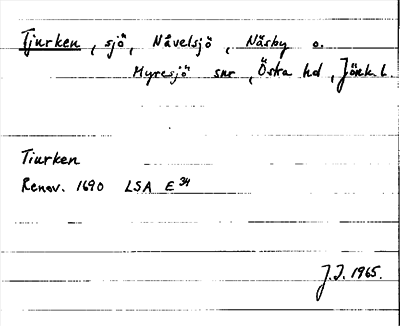 Tjurken, sjö, Nävelsjö, Näsby o.
Myresjö snr, Östra hd, Jönk. l.
Tiurken
Renov. 1690 LSA E 34
J.I. 1965.